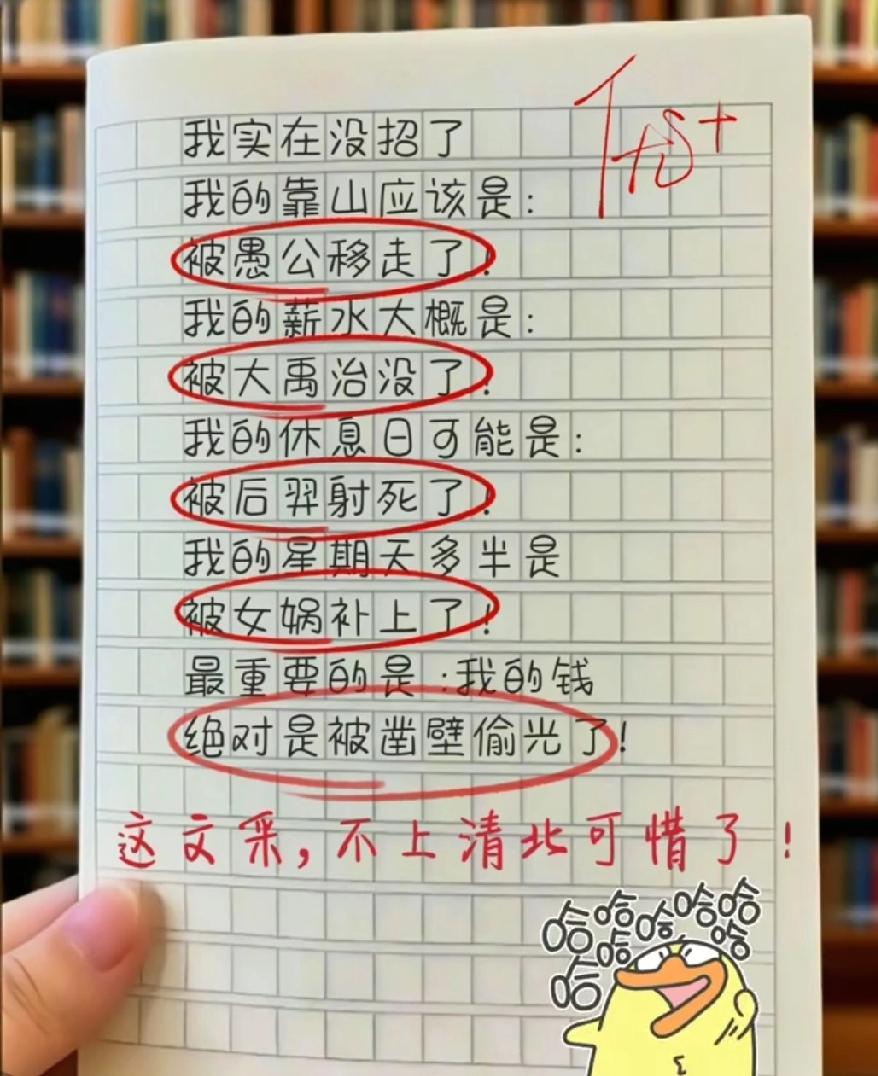 优+
我实在没招了
我的靠山应该是：
被愚公移走了！
我的薪水大概是：
被大禹治没了！
我的休息日可能是：
被后羿射死了！
我的星期天多半是
被女娲补上了！
最重要的是：我的钱
绝对是被凿壁偷光了！
这文采，不上清北可惜了！
哈哈哈哈哈哈哈哈